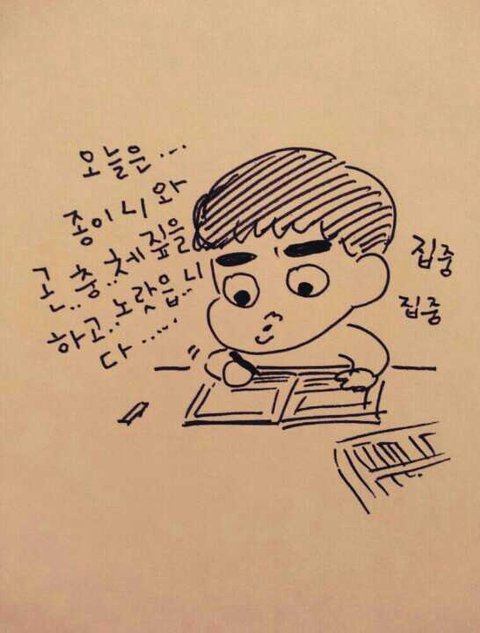 오늘은...
종이니와
곤..충..체짚을
하고..노랏읍..니
다.....
집중
집중